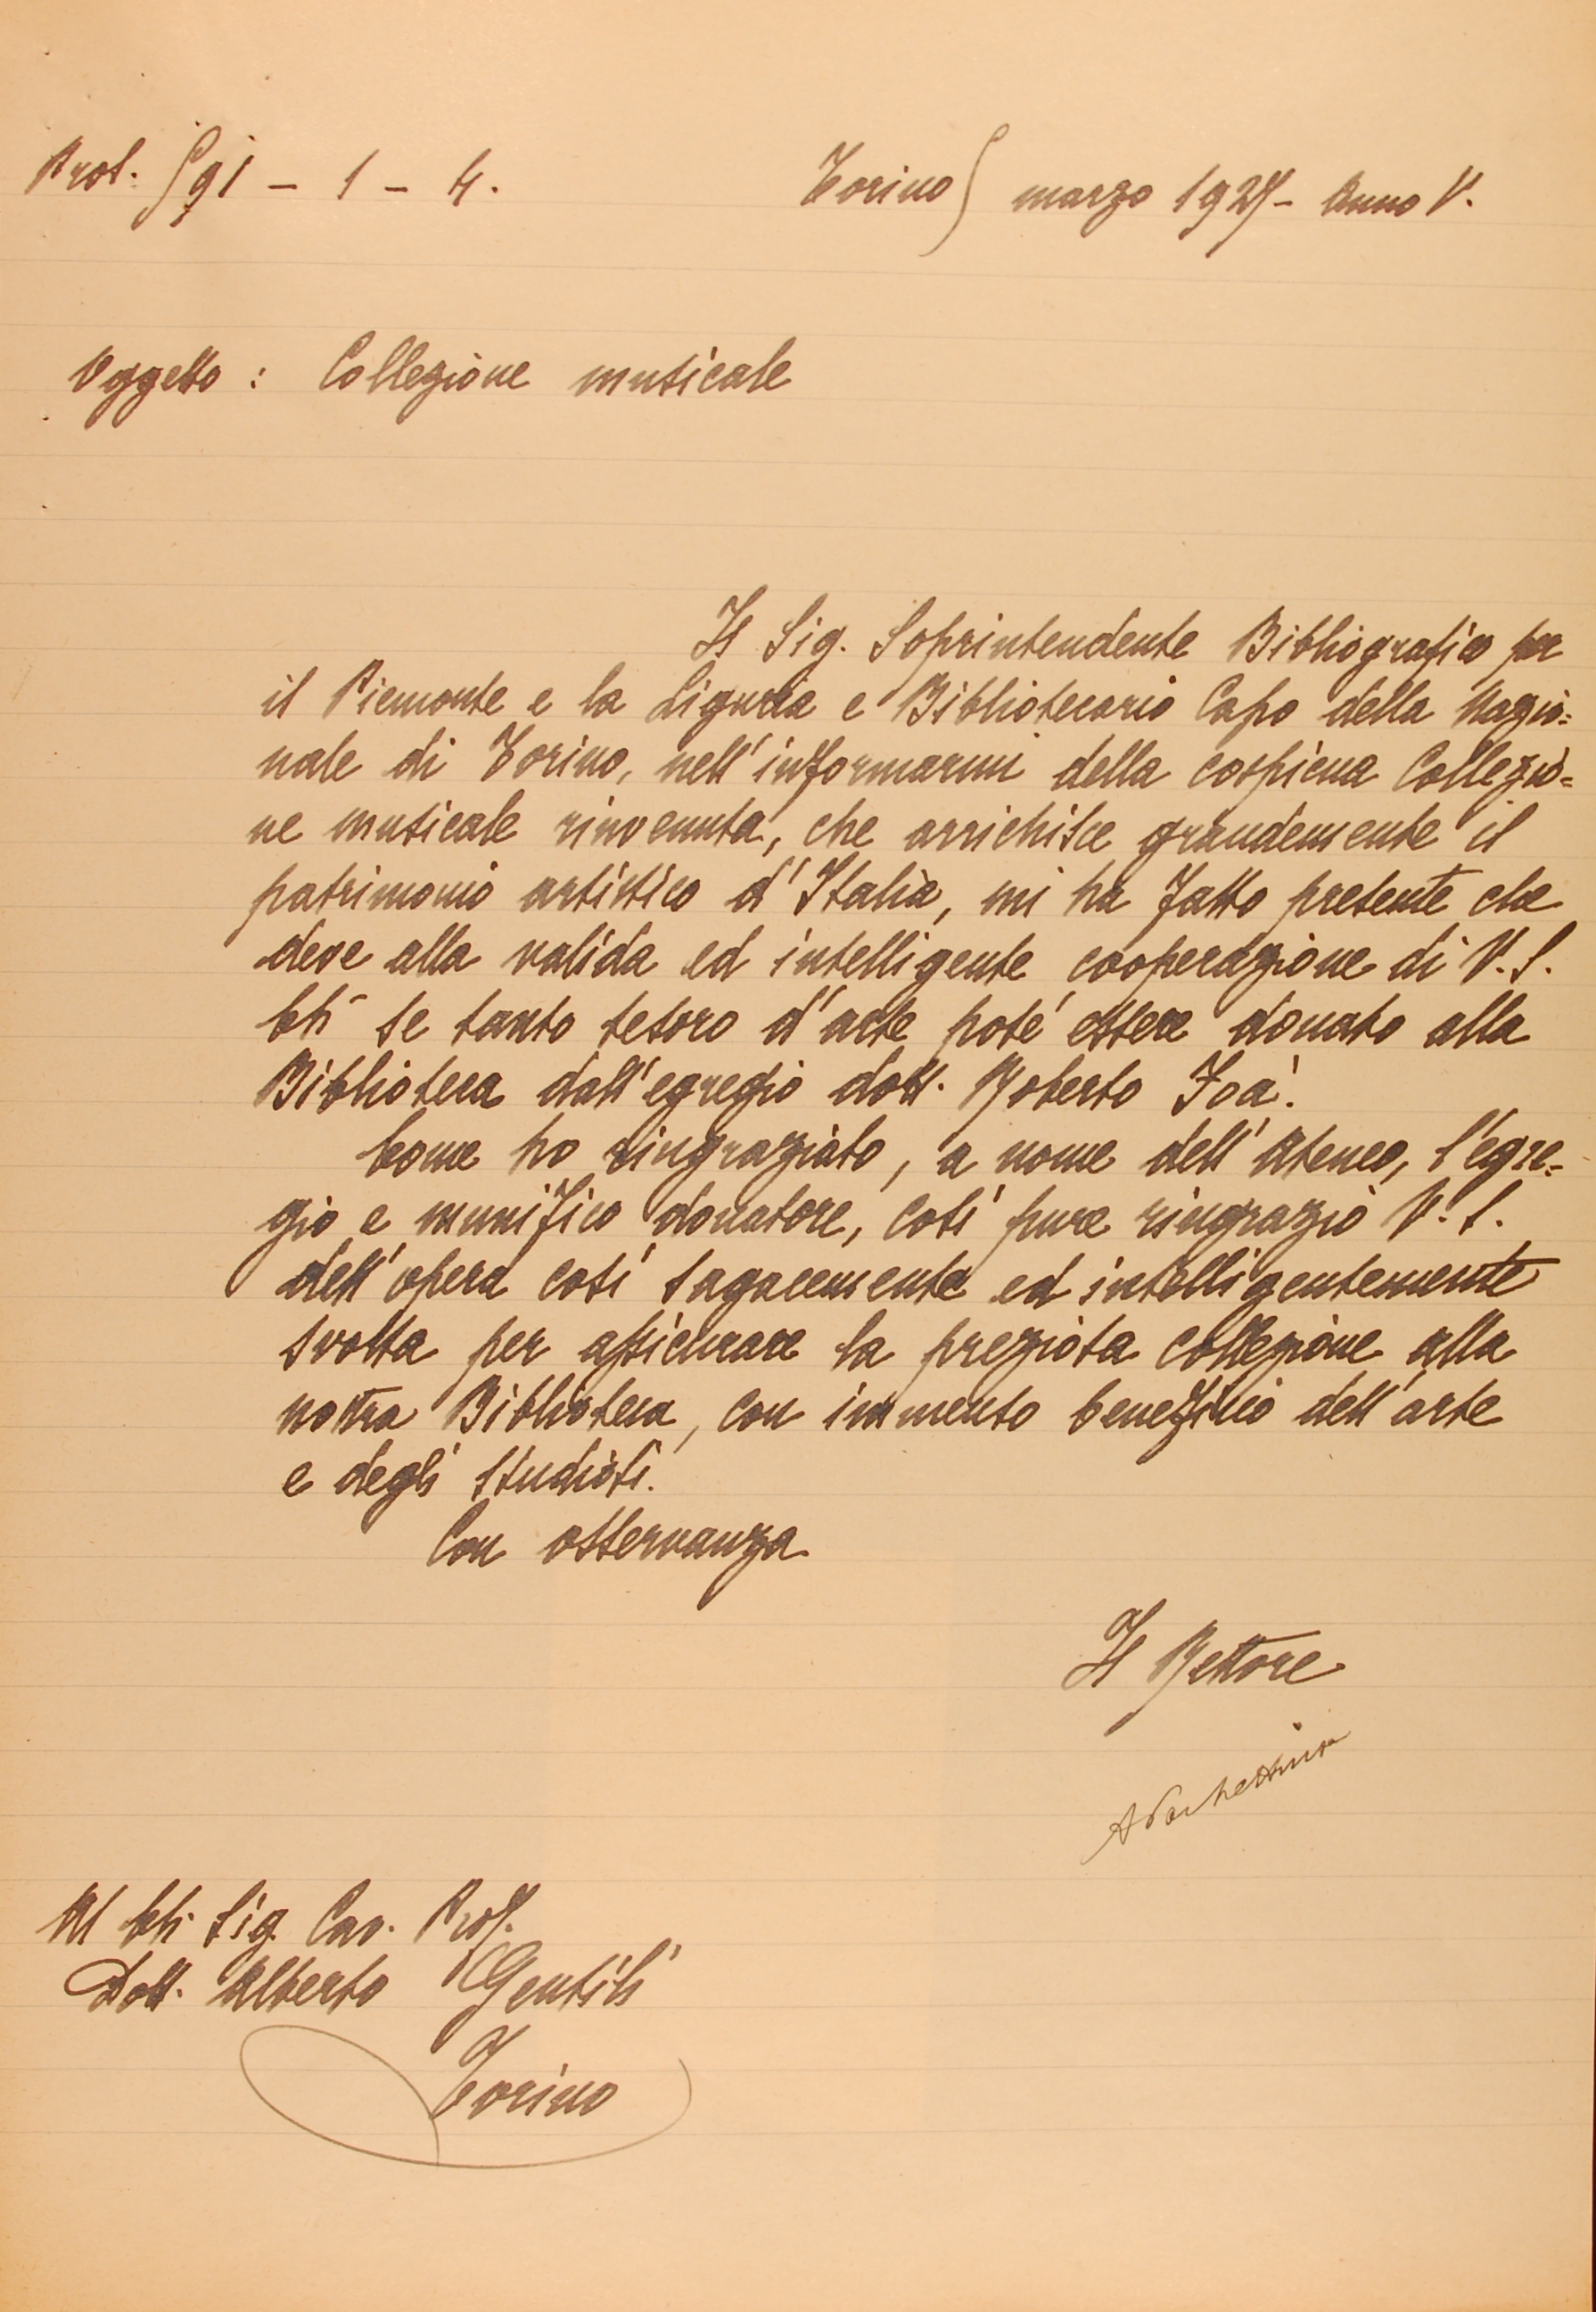 Prot. 591 - 1 - 4.
Torino 5 marzo 1927 - Anno V.
Oggetto : Collezione musicale
Il Sig. Soprintendente Bibliografico per
il Piemonte e la Liguria e Bibliotecario Capo della Nazio=
nale di Torino, nell'informarmi della cospicua Collezio=
ne musicale rinvenuta, che arrichisce grandemente il
patrimonio artistico d'Italia, mi ha fatto presente che
deve alla valida ed intelligente cooperazione di V. S.
Ch. se tanto tesoro d'arte poté essere donato alla
Biblioteca dall'egregio dott. Roberto Foà.
Come ho ringraziato, a nome dell'Ateneo, l'egre=
gio e munifico donatore, così pure ringrazio V. S.
dell'opera così sagacemente ed intelligentemente
svolta per assicurare la preziosa collezione alla
nostra Biblioteca, con immenso beneficio dell'arte
e degli studiosi.
Con osservanza
Il Rettore
Al Ch. Sig. Cav. Prof.
Dott. Alberto Gentili
Torino